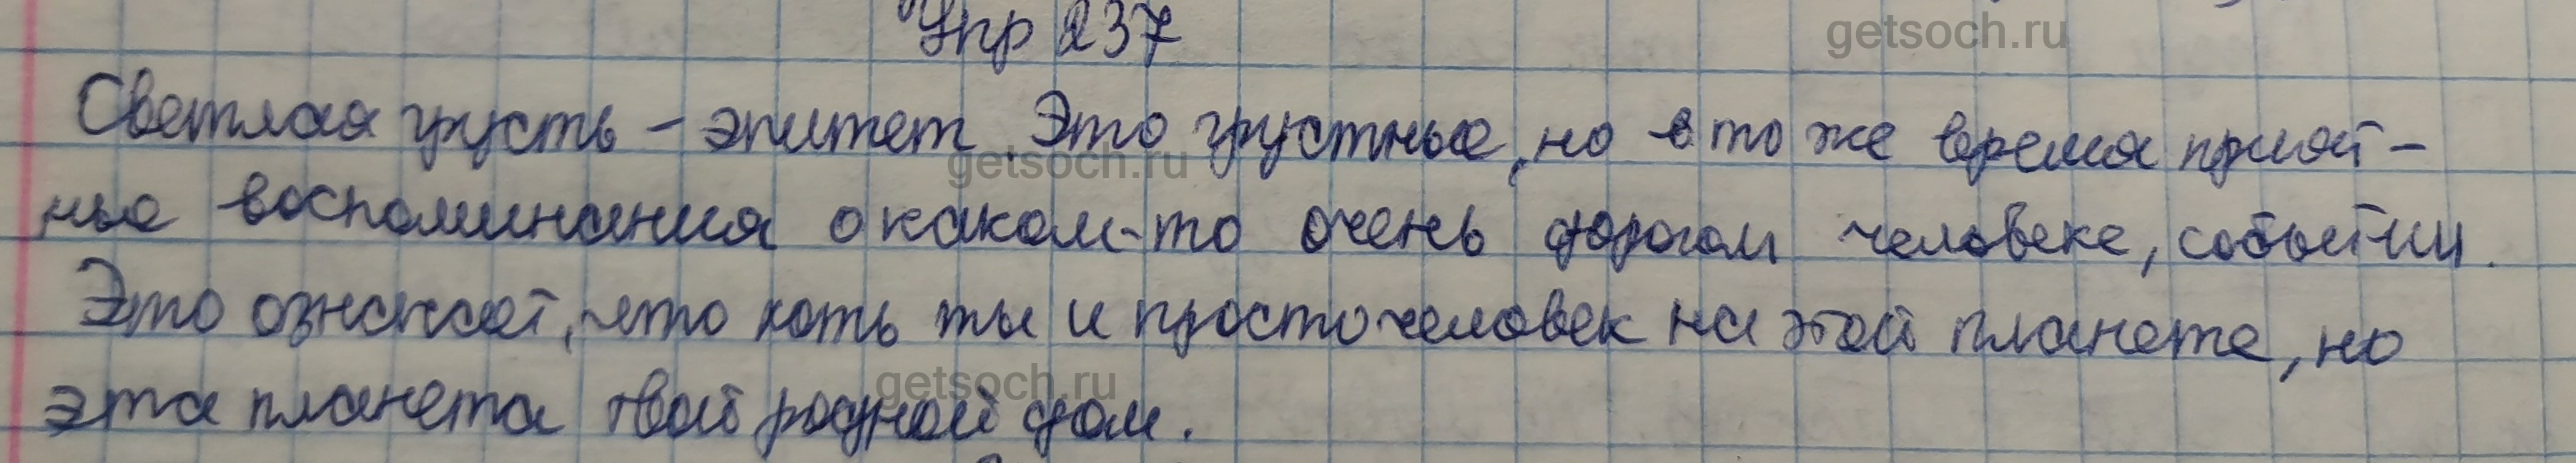 Упр 237
getsoch.ru
Светлая грусть - эпитет. Это грустные, но в то же время прият-
getsoch.ru
ные воспоминания о каком-то очень дорогом человеке, событии.
Это означает, что хоть ты и просто человек на этой планете, но
getsoch.ru
эта планета твой родной дом.